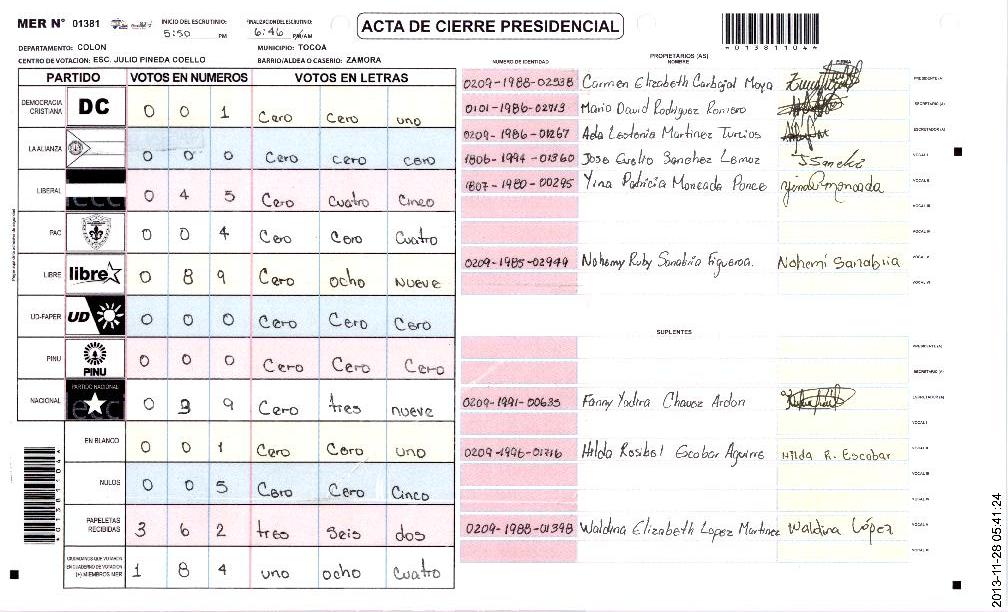 MER N° 01381
INICIO DEL ESCRUTINIO:
5:50 PM
FINALIZACION ESCRUTINIO:
6:46 PM/AM
ACTA DE CIERRE PRESIDENCIAL
*01381104*
DEPARTAMENTO: COLON
MUNICIPIO: TOCOA
CENTRO DE VOTACION: ESC. JULIO PINEDA COELLO
BARRIO/ALDEA O CASERIO: ZAMORA
PARTIDO VOTOS EN NUMEROS VOTOS EN LETRAS
DEMOCRACIA CRISTIANA DC 0 0 1 Cero Cero uno
LA ALIANZA 0 0 0 Cero cero cero
LIBERAL 0 4 5 Cero Cuatro Cinco
PAC 0 0 4 Cero Cero Cuatro
LIBRE libre 0 8 9 Cero ocho nueve
UD-FAPER UD 0 0 0 Cero Cero Cero
PINU PINU 0 0 0 Cero Cero Cero
NACIONAL PARTIDO NACIONAL 0 3 9 Cero tres nueve
EN BLANCO 0 0 1 Cero Cero uno
NULOS 0 0 5 Cero Cero Cinco
PAPELETAS RECIBIDAS 3 6 2 tres seis dos
CIUDADANOS QUE VOTARON EN CUADERNO DE VOTACION (+) MIEMBROS MER 1 8 4 uno ocho cuatro
PROPIETARIOS (AS)
NUMERO DE IDENTIDAD NOMBRE FIRMA
0209-1988-02538 Carmen Elizabeth Carbajal Moya PRESIDENTE(A)
0101-1986-02713 Mario David Rodriguez Romero SECRETARIO (A)
0209-1986-01267 Ada Lestenia Martinez Turcios ESCRUTADOR(A)
1806-1994-01360 Jose Coello Sanchez Lemuz J Sanchez VOCAL I
1807-1980-00295 Yina Patricia Moncada Ponce Yina P moncada VOCAL II
VOCAL III
VOCAL IV
0209-1985-02949 Nohemy Ruby Sanabria Figueroa. Nohemi Sanabria VOCAL V
VOCAL VI
SUPLENTES
PRESIDENTE (A)
SECRETARIO (A)
0209-1991-00635 Fanny Yadira Chavez Ardon ESCRUTADOR(A)
VOCAL I
0209-1996-01716 Hilda Rosibel Escobar Aguirre Hilda R. Escobar VOCAL II
VOCAL III
VOCAL IV
0209-1988-01398 Waldina Elizabeth Lopez Martinez Waldina López VOCAL V
VOCAL VI
2013-11-28 05:41:24